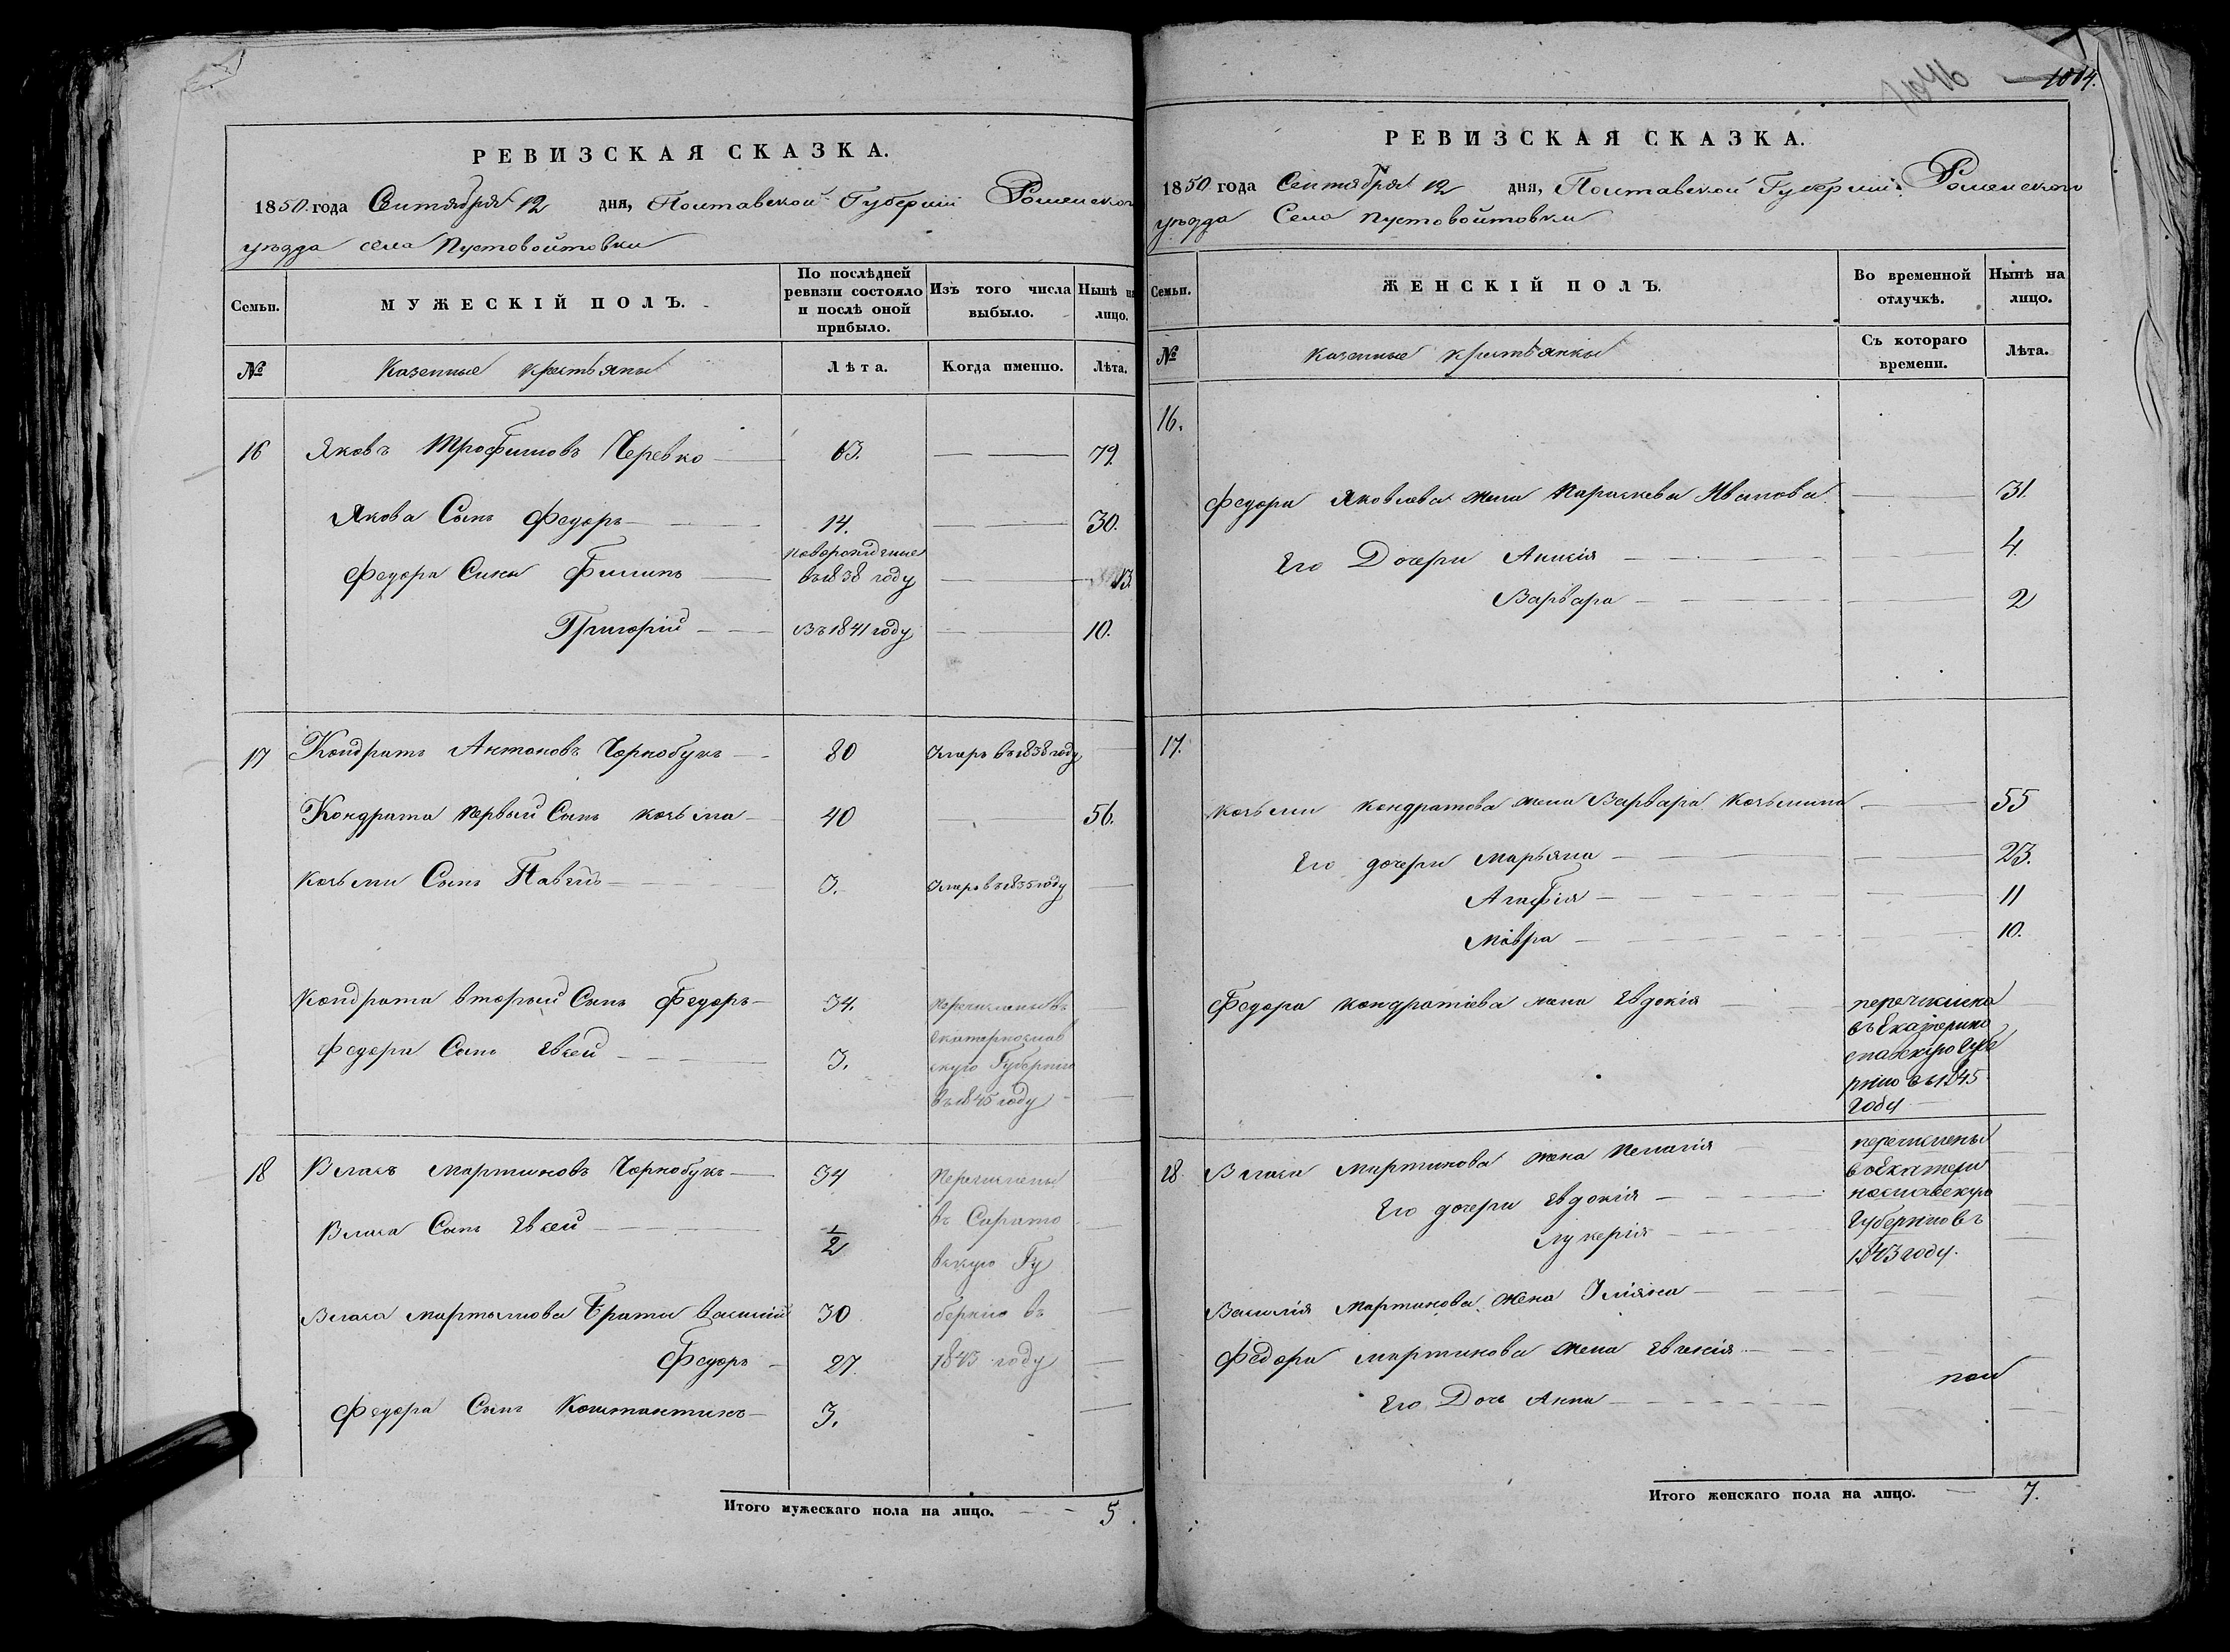 РЕВИЗСКАЯ СКАЗКА.
1850 года Сентября 12 дня, Полтавской Губерніи Роменского
уѣзда села Пустовойтовки
Семьи. МУЖЕСКІЙ ПОЛЪ. По послѣдней ревизіи состояло и послѣ оной прибыло. Изъ того числа выбыло. Нынѣ на лицо.
№ Казенные крестьяны Лѣта. Когда именно. Лѣта.
16 Яковъ Трофимовъ Черевко 63. 79.
Якова Сынъ Федоръ 14. 30.
Федора Сины Филипъ новорожденные въ 1838 году 13.
Григорій въ 1841 году 10.
17 Кондратъ Антоновъ Чорнобукъ 80 Умеръ въ 1838 году
Кондрата первый Сынъ козьма 40 56.
Козьми Сынъ Павелъ 3. Умеръ въ 1835 году
Кондрата вторый Сынъ Федоръ 34. перечислены въ
Федора Сынъ Евсей 3. Екатеринослав
скую Губернію
въ 1845 году
18 Власъ Мартиновъ Чорнобукъ 34 Перечислены
Власа Сынъ Евсей 1/2 въ Сарато
вскую Гу
Власа мартынова Браты Василій 30 бернію въ
Федоръ 27. 1843 году
Федора Сынъ Константинъ 3.
Итого мужескаго пола на лицо. 5.
1046 1014.
РЕВИЗСКАЯ СКАЗКА.
1850 года Сентября 12 дня, Полтавской Губерніи Роменского
уѣзда Села Пустовойтовки
Семьи. ЖЕНСКІЙ ПОЛЪ. Во временной отлучкѣ. Нынѣ на лицо.
№ Казенные крестьянки Съ котораго времени. Лѣта.
16.
Федора Яковлева жена Параскева Иванова 31.
Его Дочери Аннсія 4.
Варвара 2
17.
козьми кондратова жена Варвара Козьмина 55
Его дочери Марьяна 23.
Агафія 11
Мавра 10.
Федора кондратіева жена Евдокія перечислена
въ Екатерино
славскую Губе
рнію въ 1845
Году
18. Власа Мартинова жена Пелагія перечислены
Его дочери Евдокія въ Екатери
Лукерія нославскую
Губернію въ
1843 году.
Василія Мартинова жена Уліяна
Федора мартинова жена Евгенія
Его Дочь Анна
Итого женскаго пола на лицо. 7.